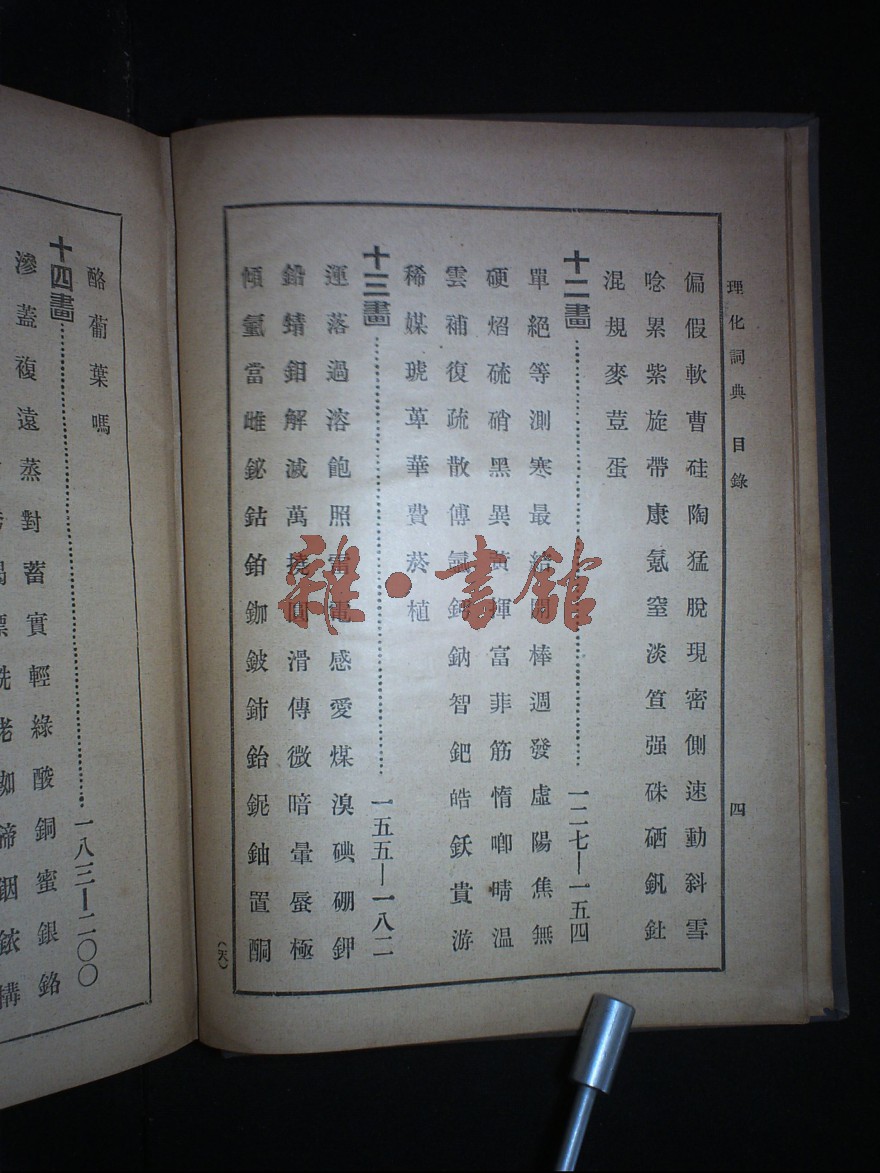 理化詞典 目錄
四
偏假軟曹硅陶猛脫現密側速動斜雪
唸累紫旋帶康氪窒淡笪强硃硒釩釷
混規麥荳蛋
十二畫 一二七—一五四
單絕等測寒最結開棒週發虛陽焦無
硬焰硫硝黑異黃揮富菲筋惰啣晴溫
雲補復疏散傅氬鈣鈉智鈀皓鈇貴游
稀媒琥萆華費菸植
十三畫 一五五—一八二
運落過溶飽照雷電感愛煤溴碘硼鉀
鉛蜻鉬解滅萬撓圓滑傳微暗暈蜃極
傾氫當雌鉍鈷鉑鉫鈹鈰鈶鈮鈾置酮
酪葡葉嗎
十四畫 一八三—二〇〇
滲蓋複遠蒸對蓄實輕綠酸銅蜜銀鉻
雜·書館